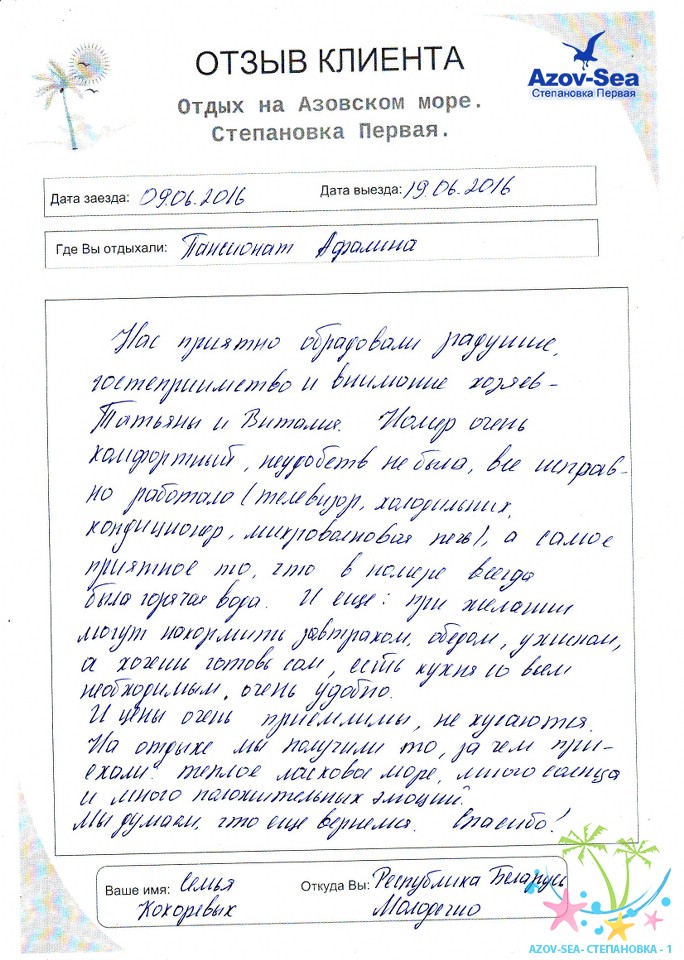 ОТЗЫВ КЛИЕНТА
Azov-Sea
Степановка Первая
Отдых на Азовском море.
Степановка Первая.
Дата заезда: 09.06.2016 Дата выезда: 19.06.2016
Где Вы отдыхали: Пансионат Афалина
Нас приятно обрадовали радушие,
гостеприимство и внимание хозяев -
Татьяны и Виталия. Номер очень
комфортный, неудобств не было, все исправ-
но работало (телевизор, холодильник,
кондиционер, микроволновая печь), а самое
приятное то, что в номере всегда
была горячая вода. И еще: при желании
могут накормить завтраком, обедом, ужином,
а хочешь готовь сам, есть кухня со всем
необходимым, очень удобно.
И цены очень приемлимы, не кусаются.
На отдыхе мы получили то, за чем при-
ехали: теплое ласковое море, много солнца
и много положительных эмоций.
Мы думаем, что еще вернемся. Спасибо!
Ваше имя: Семья Откуда Вы: Республика Беларусь
Кокоревых Молодечно
AZOV-SEA- СТЕПАНОВКА - 1